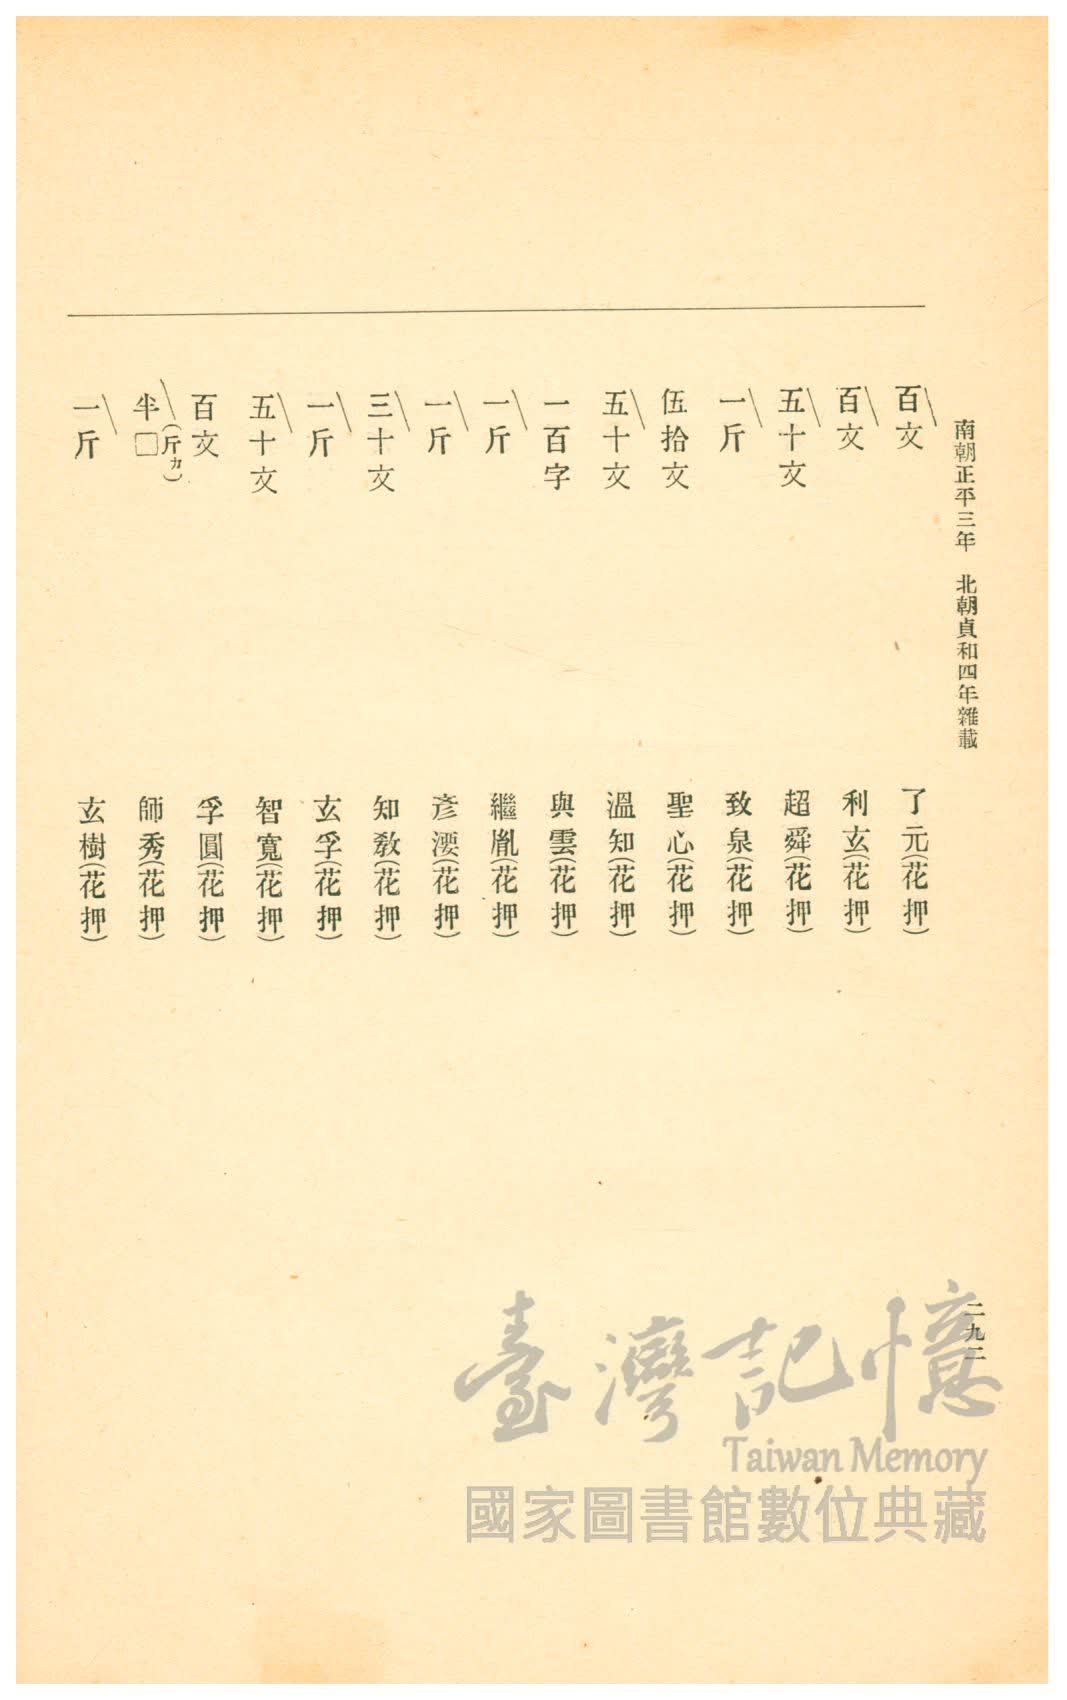 南朝正平三年　北朝貞和四年雜載
二九二
百文　了元(花押)
百文　利玄(花押)
五十文　超舜(花押)
一斤　致泉(花押)
伍拾文　聖心(花押)
五十文　溫知(花押)
一百字　與雲(花押)
一斤　繼胤(花押)
一斤　彥(花押)
三十文　知敎(花押)
一斤　玄孚(花押)
五十文　智寬(花押)
百文　孚圓(花押)
半□(斤カ)　師秀(花押)
一斤　玄樹(花押)
臺灣記憶
Taiwan Memory
國家圖書館數位典藏